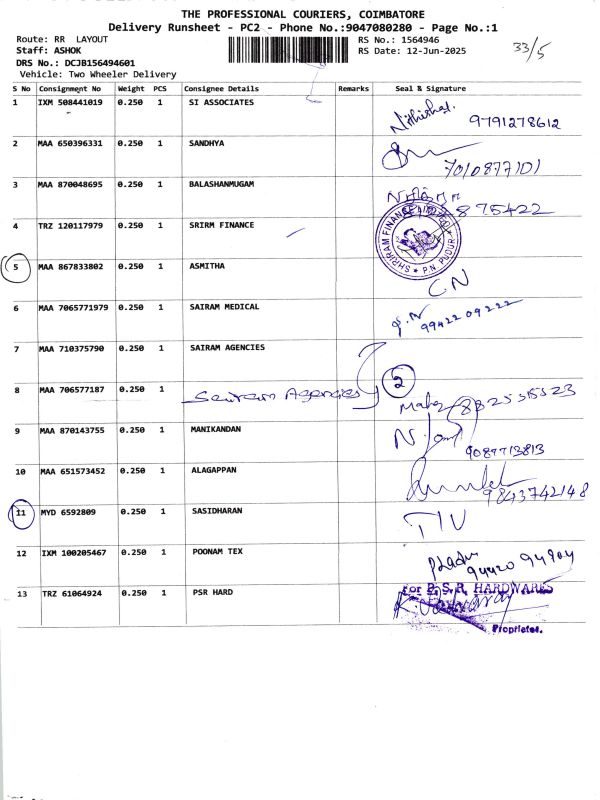 THE PROFESSIONAL COURIERS, COIMBATORE
Delivery Runsheet - PC2 - Phone No.:9047080280 - Page No.:1
Route: RR LAYOUT RS No.: 1564946
Staff: ASHOK RS Date: 12-Jun-2025 33/5
DRS No.: DCJB156494601
Vehicle: Two Wheeler Delivery
S No Consignment No Weight PCS Consignee Details Remarks Seal & Signature
1 IXM 508441019 0.250 1 SI ASSOCIATES
9791278612
2 MAA 650396331 0.250 1 SANDHYA
7010877101
3 MAA 870048695 0.250 1 BALASHANMUGAM
875422
4 TRZ 120117979 0.250 1 SRIRM FINANCE
SHRIRAM FINANCE P.N. PUDUR
5 MAA 867833802 0.250 1 ASMITHA
CN
6 MAA 7065771979 0.250 1 SAIRAM MEDICAL
9942209222
7 MAA 710375790 0.250 1 SAIRAM AGENCIES
2
8 MAA 706577187 0.250 1 Sairam Agencies
9 MAA 870143755 0.250 1 MANIKANDAN
9087713813
10 MAA 651573452 0.250 1 ALAGAPPAN
9843742148
11 MYD 6592809 0.250 1 SASIDHARAN
12 IXM 100205467 0.250 1 POONAM TEX
13 TRZ 61064924 0.250 1 PSR HARD
For P.S.R. HARDWARES
Proprietor.